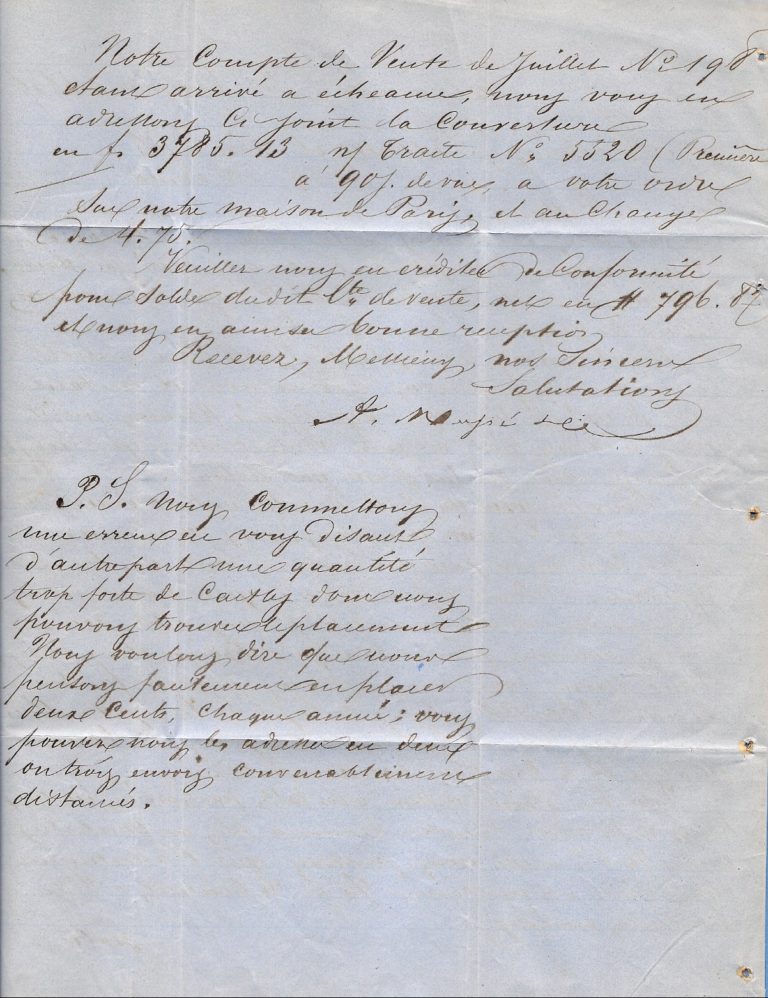 Notre Compte de Vente de Juillet No 198
étant arrivé a échéance, nous vous en
adressons Ci Joint la Couverture
en fs 3785.13 n/ Traite No 5520 (Première
a 90 j. de vue, a votre ordre
sur notre maison de Paris, et au Change
de 4.75.
Veuillez nous en créditer de Conformité
pour solde dudit Cte de vente, net en # 796.87
et nous en aviser bonne reception
Recevez, Messieurs, nos Sincères
Salutations
A.
P.S. Nous Commettons
une erreur en vous disant
d'autrepart une quantité
trop forte de Caisses dont nous
pouvons trouver le placement
Nous voulons dire que nous
pensons facilement en placer
deux Cents, chaque année; vous
pouvez nous les adresser en deux
ou trois envois convenablement
distancés.